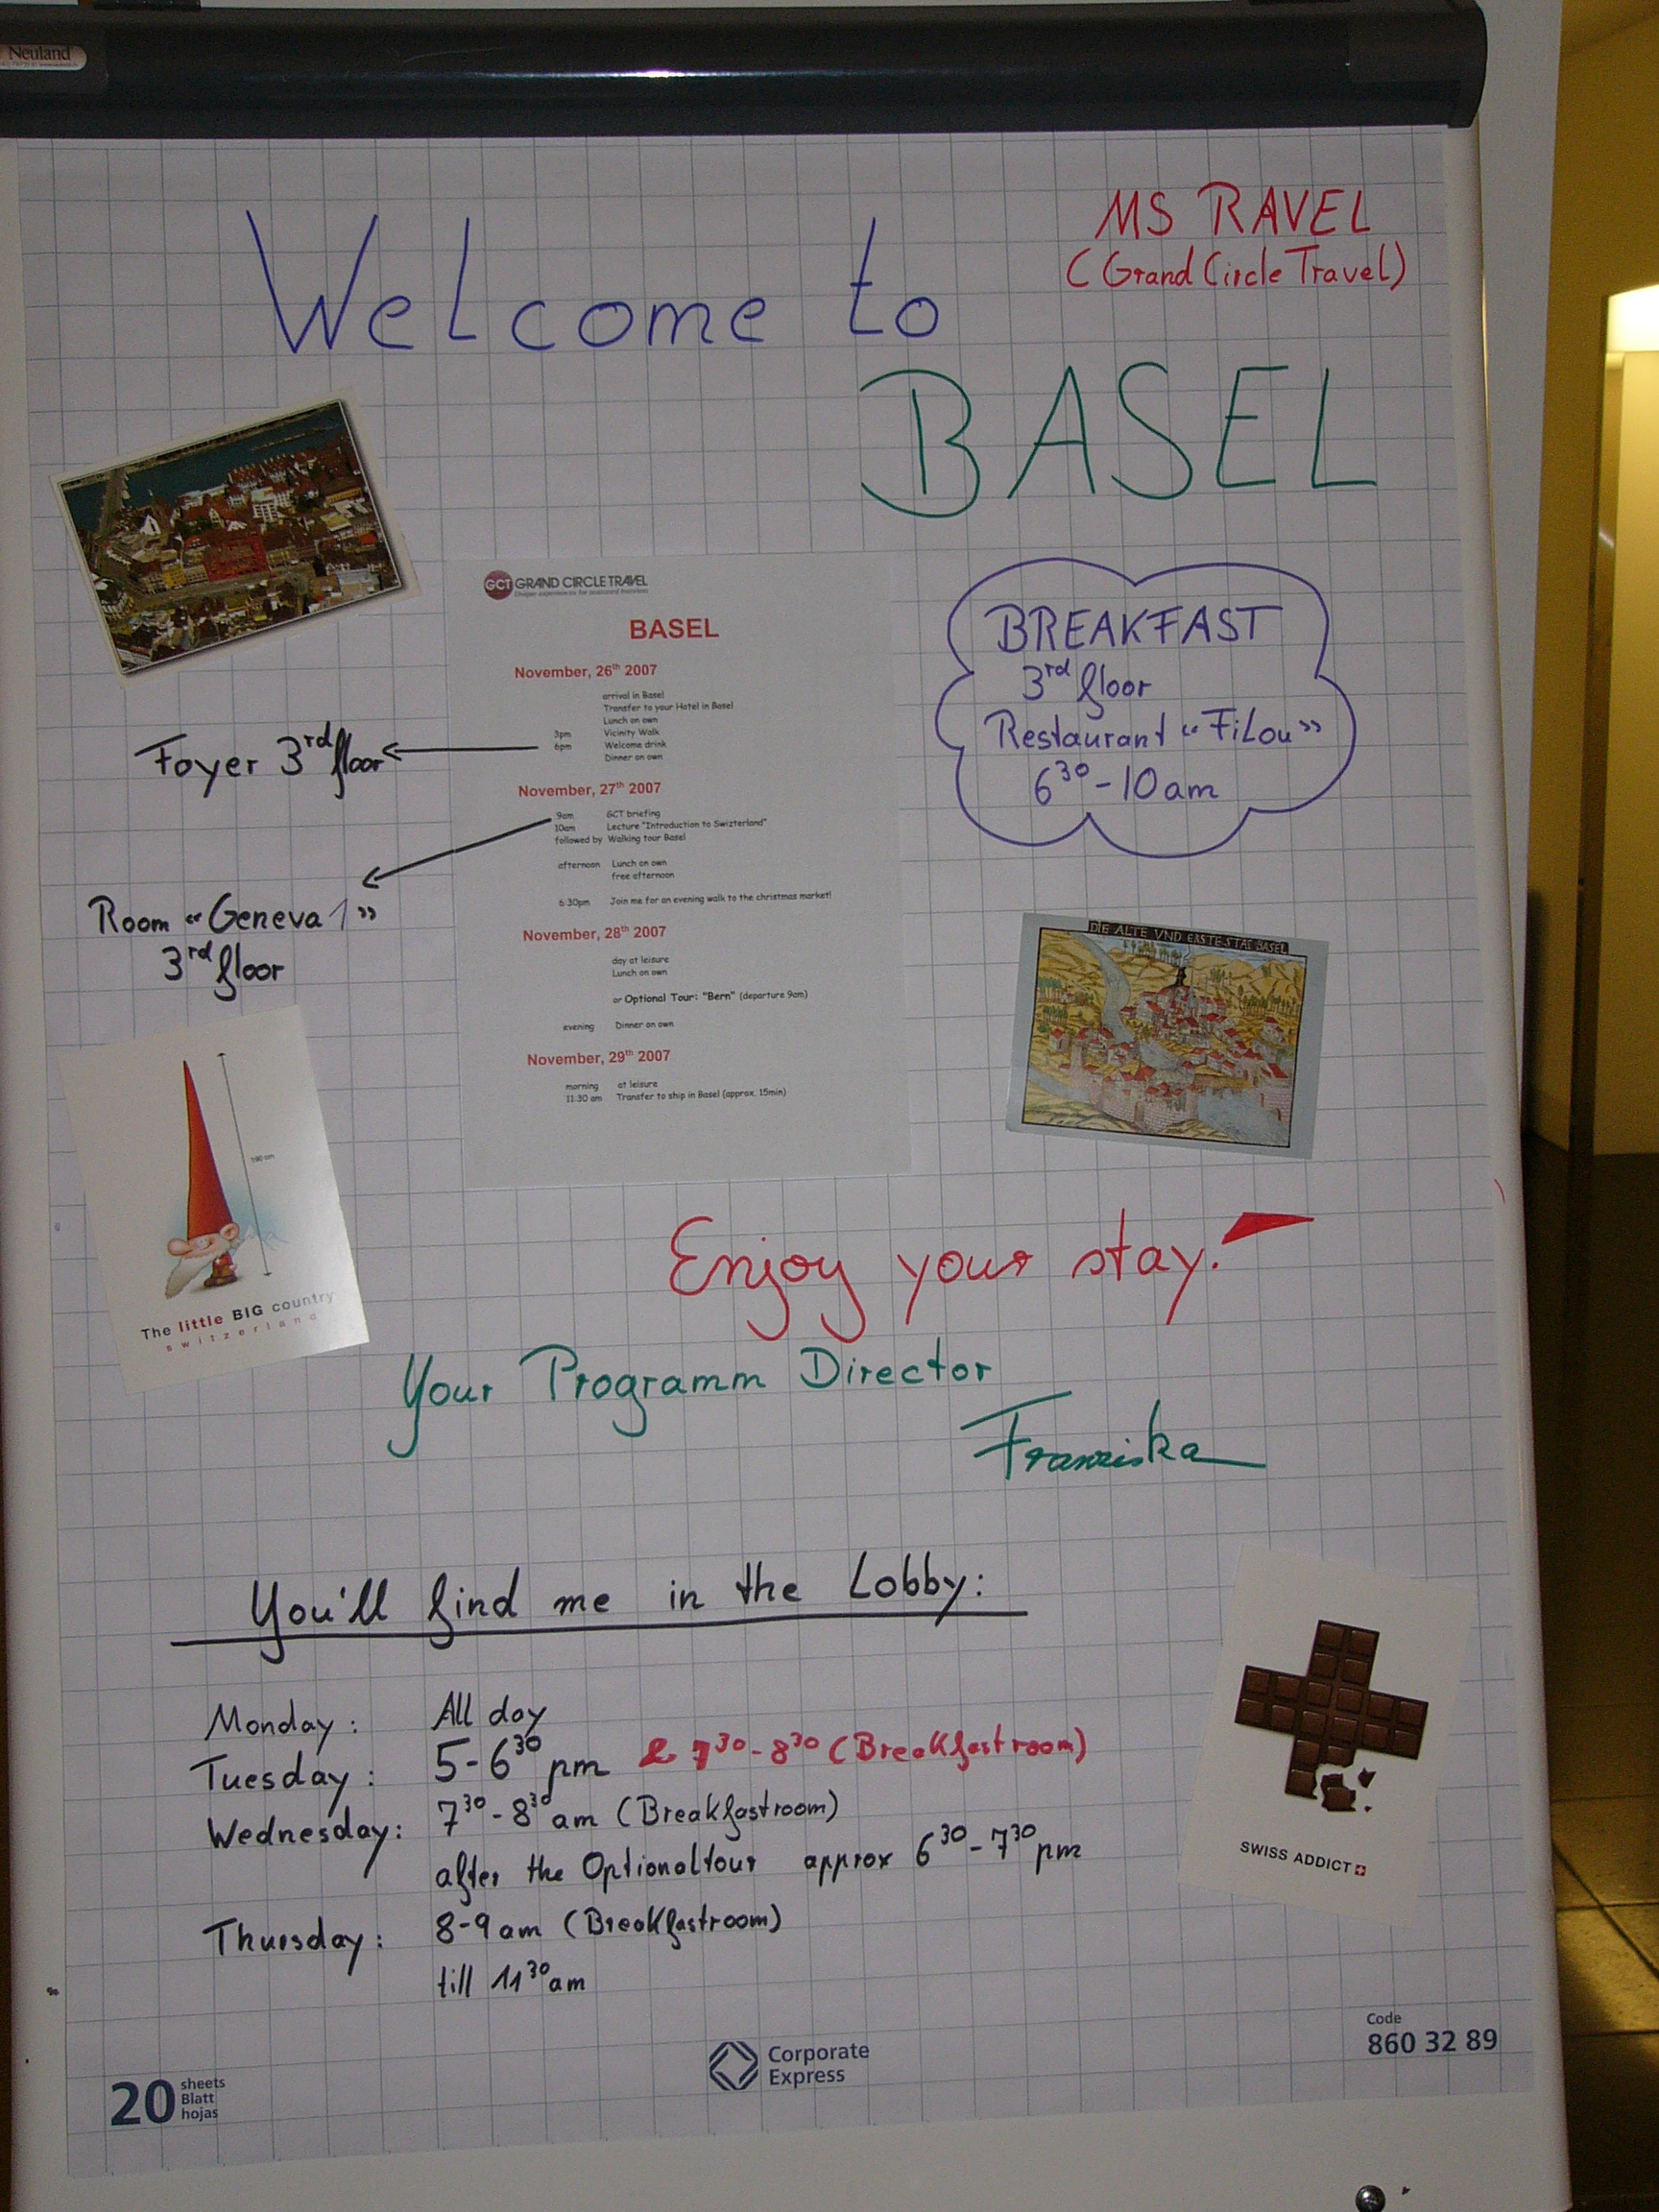 Neuland
MS RAVEL
(Grand Circle Travel)
Welcome to
BASEL
GCT GRAND CIRCLE TRAVEL
BASEL
November, 26th 2007
arrival in Basel
Transfer to your Hotel in Basel
Lunch on own
3pm Vicinity Walk
6pm Welcome drink
Dinner on own
November, 27th 2007
9am GCT briefing
10am Lecture "Introduction to Swizterland"
followed by Walking tour Basel
afternoon Lunch on own
free afternoon
6:30pm Join me for an evening walk to the christmas market!
November, 28th 2007
day at leisure
Lunch on own
or Optional Tour: "Bern" (departure 9am)
evening Dinner on own
November, 29th 2007
morning at leisure
11:30 am Transfer to ship in Basel (approx. 15min)
Foyer 3rd floor
Room «Geneva 1»
3rd floor
BREAKFAST
3rd floor
Restaurant «FiLou»
6 30 - 10 am
DIE ALTE VND ERSTE STAT BASEL
The little BIG country
switzerland
Enjoy your stay!
Your Programm Director
Franziska
You'll find me in the Lobby:
Monday: All day
Tuesday: 5-6 30 pm & 7 30 - 8 30 (Breakfastroom)
Wednesday: 7 30 - 8 30 am (Breakfastroom)
after the Optionaltour approx 6 30 - 7 30 pm
Thursday: 8-9 am (Breakfastroom)
till 11 30 am
SWISS ADDICT
20 sheets
Blatt
hojas
Corporate
Express
Code
860 32 89